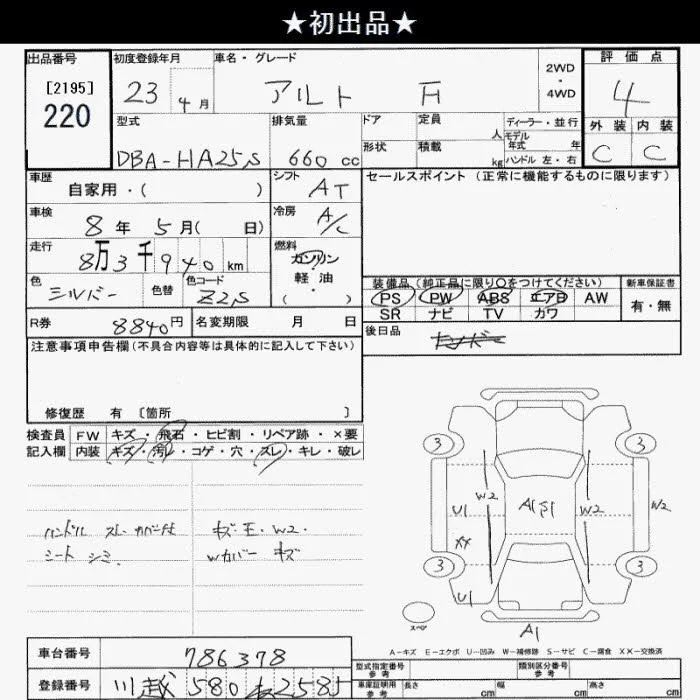 ★初出品★
出品番号
[2195]
220
初度登録年月
23 4月
車名・グレード
アルト F
2WD
・
4WD
評価点
4
外装 内装
C C
型式
DBA-HA25S
排気量
660 cc
ドア
形状
定員 人
積載 kg
ディーラー・並行
モデル
年式 年
ハンドル 左・右
車歴
自家用・( )
シフト
AT
セールスポイント (正常に機能するものに限ります)
車検
8年 5月( 日)
冷房
A/C
走行
8万3千940 km
燃料
ガソリン
軽油
( ・ )
色
シルバー
色替
色コード
Z2S
装備品(純正品に限り○をつけてください)
PS PW ABS エアB AW
SR ナビ TV カワ
新車保証書
有・無
R券
8840円
名変期限 月 日
後日品
注意事項申告欄(不具合内容等は具体的に記入して下さい)
修復歴 有 [箇所 ]
検査員
記入欄
FW キズ・飛石・ヒビ割・リペア跡・×要
内装 キズ・汚レ・コゲ・穴・スレ・キレ・破レ
ハンドル スレ カバー付
シート シミ
キズ・E・W2・
Wカバー キズ
3 3
W2
U1
A1S1
W2
W2
XX
3 3
U1
スペア
A1
A-キズ E-エクボ U-凹み W-補修跡 S-サビ C-腐食 XX-交換済
車台番号
786378
登録番号
川越 580 2585
型式指定番号
参考
類別区分番号
参考
車庫証明用
参考
長さ cm
幅 cm
高さ cm